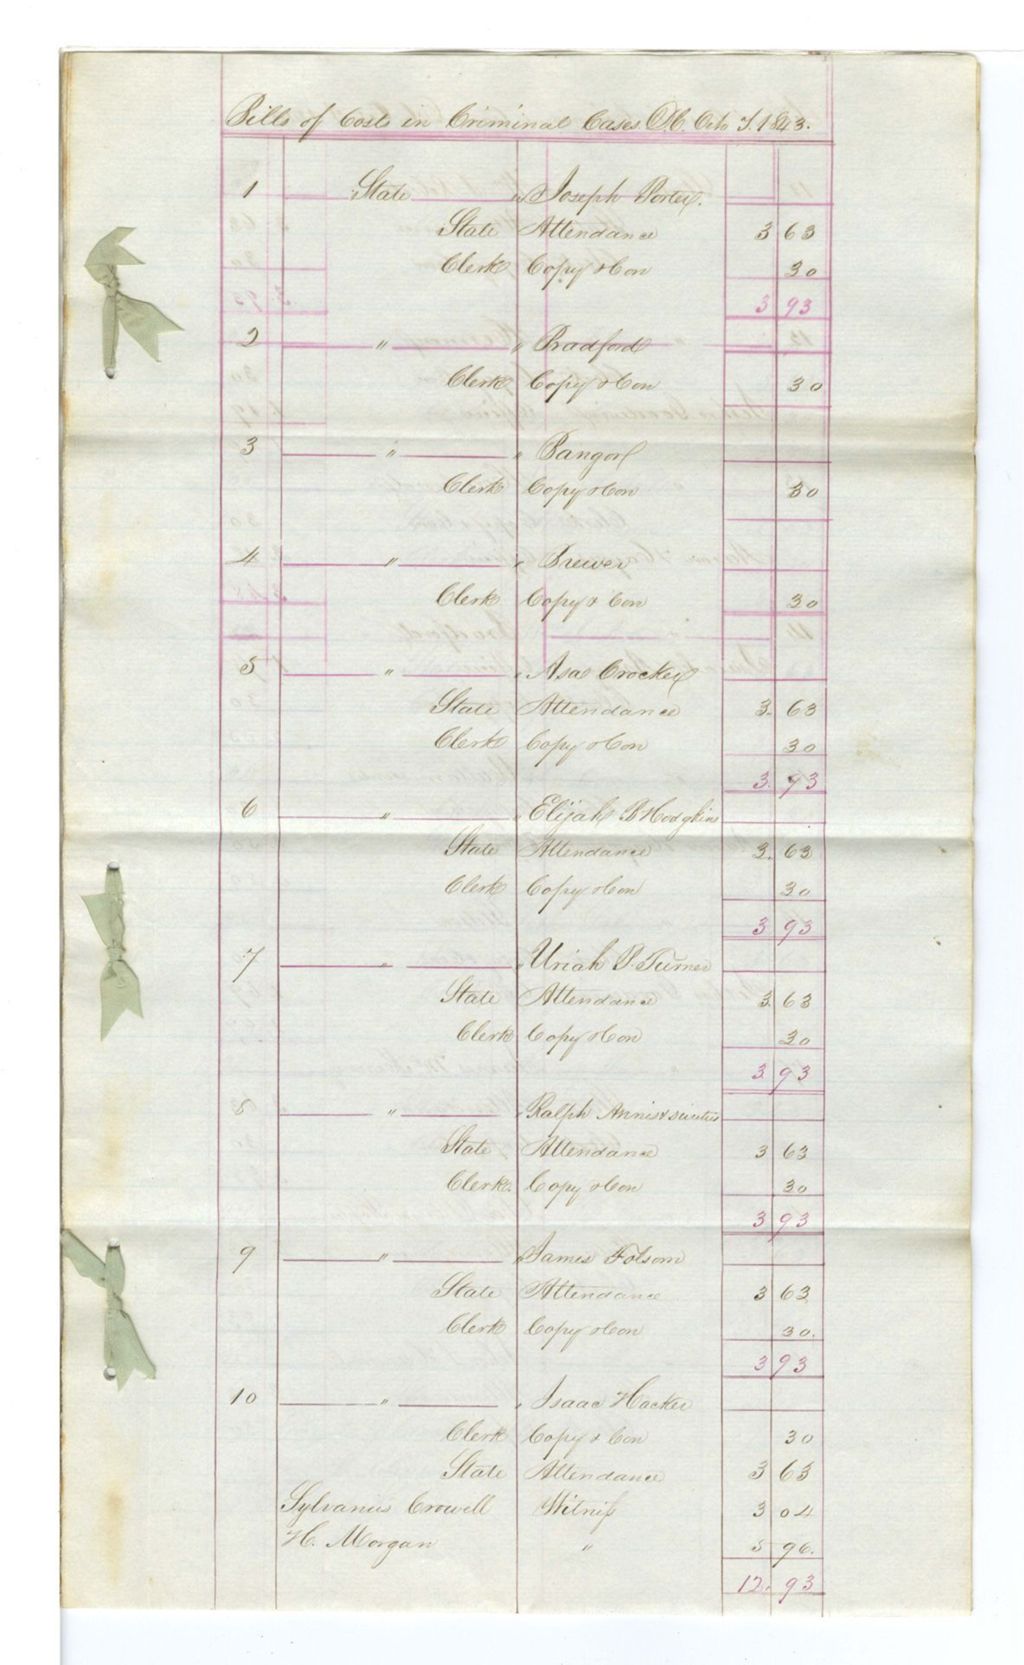 Bills of Costs in Criminal Cases D.C. Octo T. 1843.
1 State " Joseph Porter.
State Attendance 3 63
Clerk Copy & Con 30
3 93
2 " " Bradford
Clerk Copy & Con 30
3 " " Bangor
Clerk Copy & Con 30
4 " " Brewer
Clerk Copy & Con 30
5 " " Asa Crocker
State Attendance 3. 63
Clerk Copy & Con 30
3. 93
6 " " Elijah B Hodgkins
State Attendance 3. 63
Clerk Copy & Con 30
3 93
7 " " Uriah B. Turner
State Attendance 3. 63
Clerk Copy & Con 30
3. 93
8 " " Ralph Annis & sureties
State Attendance 3 63
Clerk. Copy & Con 30
3 93
9 " " James Folsom
State Attendance 3 63
Clerk Copy & Con 30.
3 93
10 " " Isaac Hacker
Clerk Copy & Con 30
State Attendance 3 63
Sylvanus Crowell Witness 3 04
H. Morgan " 5 96.
12. 93